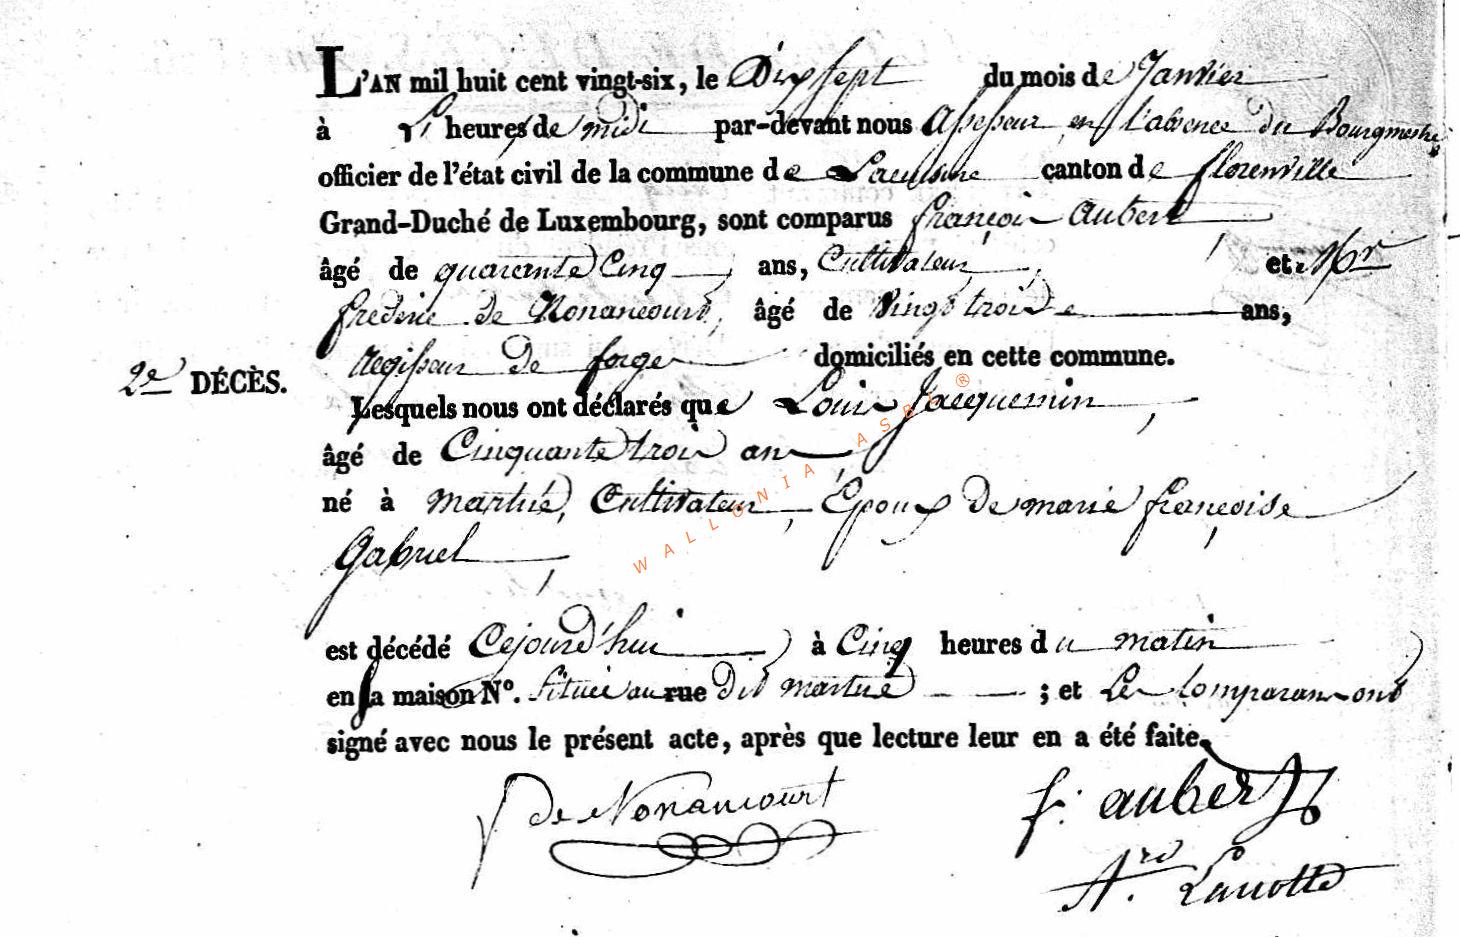 L'AN mil huit cent vingt-six, le Dix sept du mois de Janvier
à heures de midi par-devant nous Assesseur en l'absence du Bourgmestre
officier de l'état civil de la commune de Lacuisine canton de florenville
Grand-Duché de Luxembourg, sont comparus françois Aubert,
âgé de quarante Cinq ans, Cultivateur, et Mr
frederic de Nonancourt, âgé de Vingt trois ans,
Regisseur de forge domiciliés en cette commune.
2e DÉCÈS.
Lesquels nous ont déclarés que Louis Jacquemin,
âgé de Cinquante trois ans,
né à Martué, Cultivateur, Epoux de marie françoise
Gabriel,
est décédé Cejourd'hui à Cinq heures du matin
en sa maison No. Située au rue dit martué ; et Les Comparans ont
signé avec nous le présent acte, après que lecture leur en a été faite.
De Nonancourt
f. aubert
Lanotte
WALLONIA ASBL ®